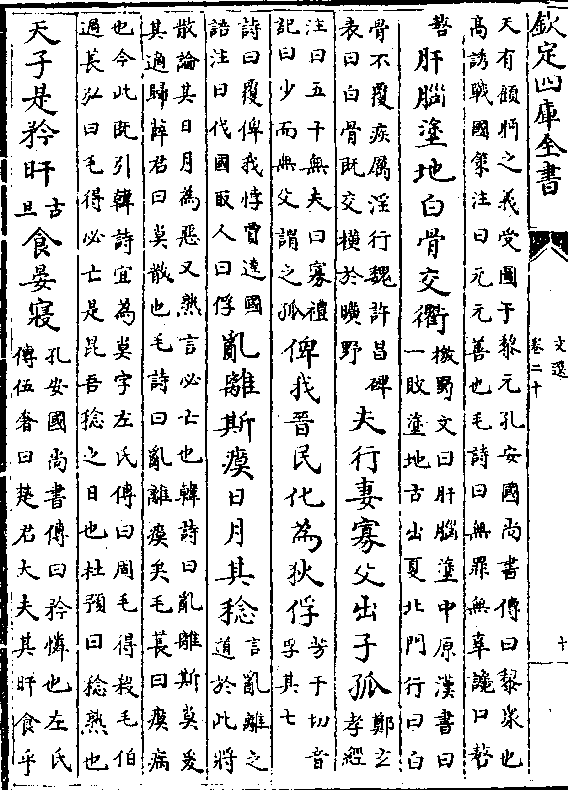 欽定四庫全書
文選
卷二十
十
天有顧眄之義受圖于黎元孔安國尚書傳曰黎衆也
高誘戰國策注曰元元善也毛詩曰無罪無辜讒口嗸
嗸
肝腦塗地白骨交衢
檄蜀文曰肝腦塗中原漢書曰
一敗塗地古出夏北門行曰白
骨不覆疾厲淫行魏許昌碑
表曰白骨既交橫於曠野
夫行妻寡父出子孤
鄭玄
孝經
注曰五十無夫曰寡禮
記曰少而無父謂之孤
俾我晉民化為狄俘
芳于切音
孚其七
詩曰覆俾我悖賈逵國
語注曰伐國取人曰俘
亂離斯瘼日月其稔
言亂離之
道於此將
散論其日月為惡又熟言必亡也韓詩曰亂離斯莫爰
其適歸薛君曰莫散也毛詩曰亂離瘼矣毛萇曰瘼病
也今此既引韓詩宜為莫字左氏傳曰周毛得殺毛伯
過萇弘曰毛得必亡是昆吾稔之日也杜預曰稔熟也
天子是矜旰
古
旦
食晏寢
孔安國尚書傳曰矜憐也左氏
傳伍奢曰楚君大夫其旰食乎